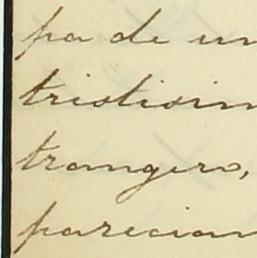 pa de un
tristisim
trangero,
parecian